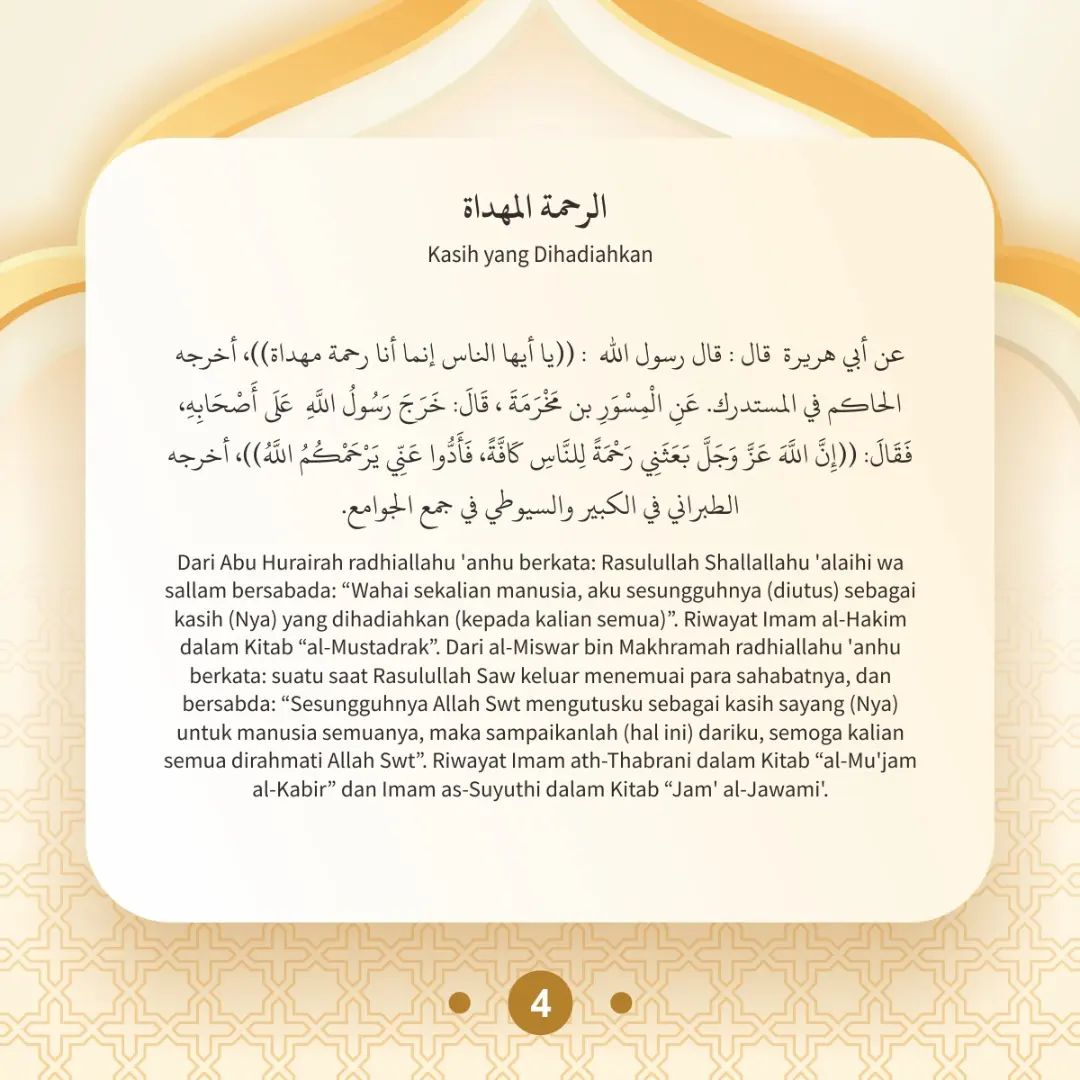 الرحمة المهداة
Kasih yang Dihadiahkan
عن أبي هريرة قال : قال رسول الله : ((يا أيها الناس إنما أنا رحمة مهداة))، أخرجه
الحاكم في المستدرك. عَنِ الْمِسْوَرِ بن مَخْرَمَةَ ، قَالَ: خَرَجَ رَسُولُ اللَّهِ عَلَى أَصْحَابِهِ،
فَقَالَ: ((إِنَّ اللَّهَ عَزَّ وَجَلَّ بَعَثَنِي رَحْمَةً لِلنَّاسِ كَافَّةً، فَأَدُّوا عَنِّي يَرْحَمْكُمُ اللَّهُ))، أخرجه
الطبراني في الكبير والسيوطي في جمع الجوامع.
Dari Abu Hurairah radhiallahu 'anhu berkata: Rasulullah Shallallahu 'alaihi wa
sallam bersabada: “Wahai sekalian manusia, aku sesungguhnya (diutus) sebagai
kasih (Nya) yang dihadiahkan (kepada kalian semua)”. Riwayat Imam al-Hakim
dalam Kitab “al-Mustadrak”. Dari al-Miswar bin Makhramah radhiallahu 'anhu
berkata: suatu saat Rasulullah Saw keluar menemuai para sahabatnya, dan
bersabda: “Sesungguhnya Allah Swt mengutusku sebagai kasih sayang (Nya)
untuk manusia semuanya, maka sampaikanlah (hal ini) dariku, semoga kalian
semua dirahmati Allah Swt”. Riwayat Imam ath-Thabrani dalam Kitab “al-Mu'jam
al-Kabir” dan Imam as-Suyuthi dalam Kitab “Jam' al-Jawami'.
4